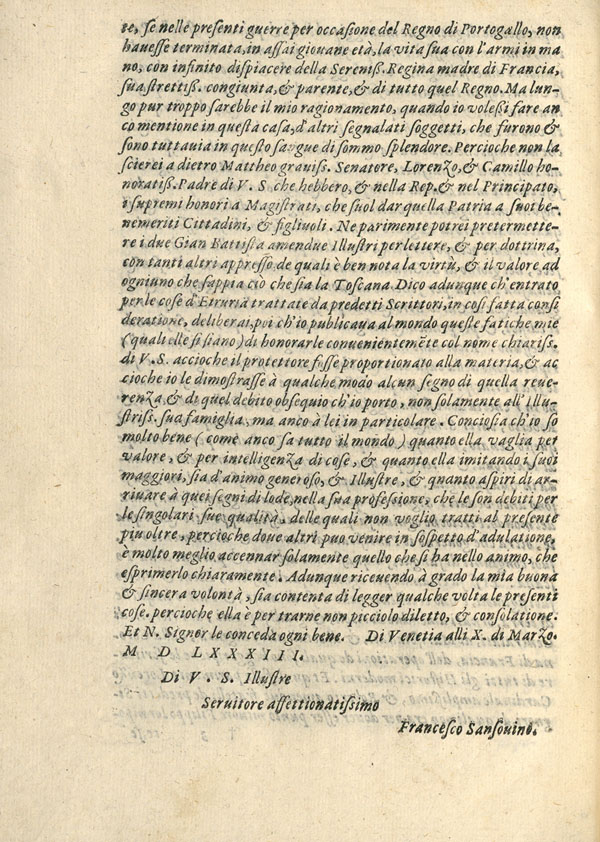 te, se nelle presenti guerre per occasione del Regno di Portogallo, non
hauesse terminata, in assai giouane età, la vita sua con l'armi in ma
no, con infinito dispiacere della Sereniß. Regina madre di Francia,
sua strettiß. congiunta, & parente, & di tutto quel Regno. Ma lun-
go pur troppo sarebbe il mio ragionamento, quando io voleßi fare an
co mentione in questa casa, d'altri segnalati soggetti, che furono &
sono tuttauia in questo sangue di sommo splendore. Percioche non la
scierei a dietro Mattheo grauiss. Senatore, Lorenzo, & Camillo ho-
noratiß. Padre di V. S che hebbero, & nella Rep. & nel Principato,
i supremi honori a Magistrati, che suol dar quella Patria a suoi be-
nemeriti Cittadini, & figliuoli. Ne parimente potrei pretermette-
re i due Gian Battista amendue Illustri per lettere, & per dottrina,
con tanti altri appresso de quali è ben nota la virtù, & il valore ad
ogniuno che sappia ciò che sia la Toscana Dico adunque ch'entrato
per le cose d'Etruria trattate da predetti Scrittori, in cosi fatta consi
deratione, deliberai, poi ch'io publicaua al mondo queste fatiche mie
(quali elle si siano) di honorarle conueniente mẽte col nome chiariss.
di V. S. accioche il protettore fosse proportionato alla materia, & ac
cioche io le dimostrasse à qualche modo alcun segno di quella reue-
renza, & di quel debito obsequio ch'io porto, non solamente all'Illu-
striss. sua famiglia, ma anco à lei in particolare. Conciosia ch'io so
molto bene (come anco sa tutto il mondo) quanto ella vaglia per
valore, & per intelligenza di cose, & quanto ella imitando i suoi
maggiori, sia d'animo generoso, & Illustre, & quanto aspiri di ar-
riuare à quei segni di lode, nella sua professione, che le son debiti per
le singolari sue qualità, delle quali non voglio tratti al presente
piu oltre, percioche doue altri puo venire in sospetto d'adulatione,
è molto meglio accennar solamente quello che si ha nello animo, che
esprimerlo chiaramente. Adunque riceuendo à grado la mia buona
& sincera volontà, sia contenta di legger qualche volta le presenti
cose. percioche ella è per trarne non picciolo diletto, & consolatione.
Et N. Signor le conceda ogni bene. Di Venetia alli X. di Marzo.
M D LXXXIII.
Di V. S. Illustre
Seruitore affettionatissimo
Francesco Sansouino.